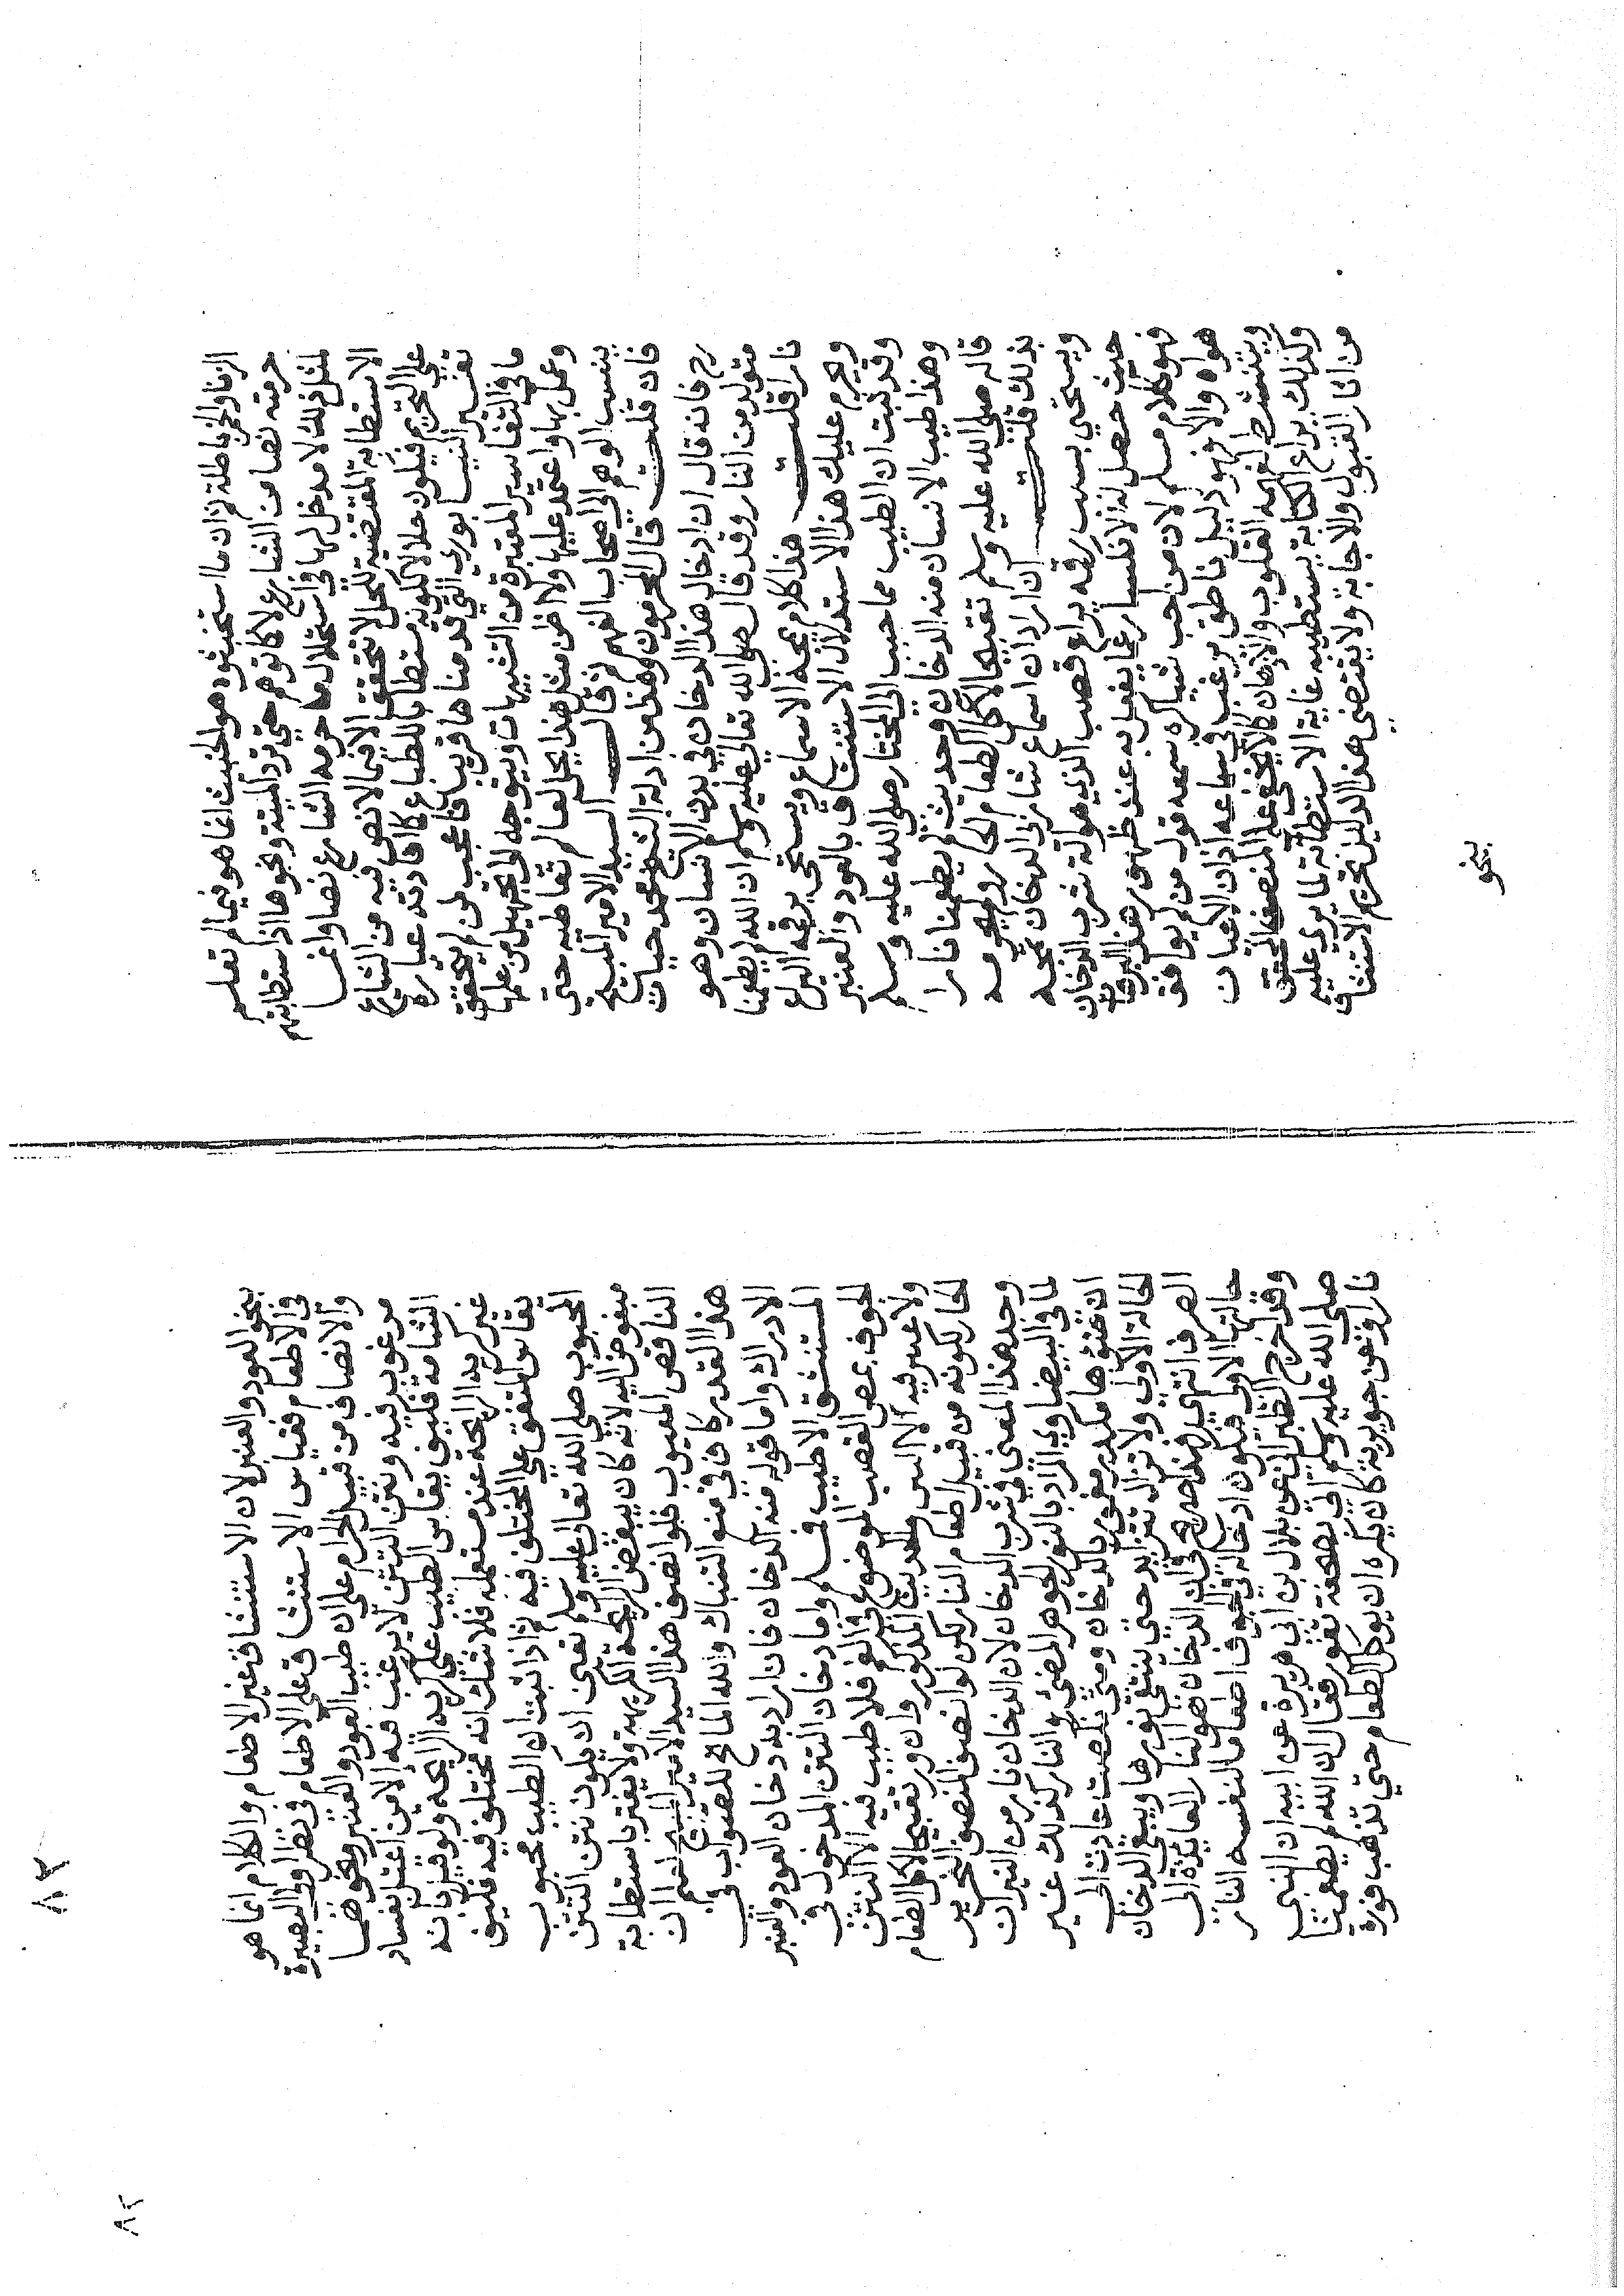 الزنا والخمر باطلة ثم ان ما استخبثوه هو الخبيث انما هو فيما لم تعلم
حرمته نصا من الشارع لا كما توهم حتى ترد الميتة ونحوها اذا استطابتهم
لمثل ذلك لا مدخل لها في استحلال ما حرمه الشارع نصا وانما
الاستطابة المقتضية للحل لا تتحقق الا فيما لا نص فيه من الشارع
على التحريم فيكون حلالا لكونه مستطابا للطباع كما افادته عبارة
تفسير النيسابوري التي قدمناها قريبا فاعجب لمن لم يتحقق
ما في التفاسير المعتبرة من التنبيهات ويتوجه الى تجهيل من علمها
وعمل بها واعتمد عليها ولا اظن مثل هذا يحل لعالم تعاطيه حتى
ينسب الوهم الى اصحاب الفهم ثم قال السيد الامير المبيح
فان قلت قال المحرمون وهذا من ادلة الشيخ محمد حيات
رح فانه قال ان ادخال هذا الدخان في بدن الانسان وهو
متولد من النار وقد قال صلى الله تعالى عليه وسلم ان الله لم يطعمنا
نارا قلت هذا كلام يمجه الاسماع ويستحي برقمه اليراع
ويحرم عليك هذا الاستدلال الاستنشاق بالعود والعنبر
وقد ثبت ان الطيب مما حبب الى المختار صلى الله عليه وسلم
وهذا طيب الانسان منه الدخان وحديث لم يطعمنا نارا
قاله صلى الله عليه وسلم تقبيحا لاكل الطعام الحار ولم يحرمه
بذلك قلت ان اراد ان اسماع شاربى الدخان تمجه
ويستحي بسبب رقمه يراع قصب الذي هو آلة شرب الدخان
حيث حصل له الانكسار عما يفعل به عند ظهور هذا البرهان
فهو كلام مسلم لان من احب شيئا كره سمعه قول من لم يوافق
هواه والا فهو دليل ناطق يرغب في سماعه اذان الاعيان
وينشط لفهمه القلوب والاذهان كما لا يخفى على المنصف المحقق
وكذلك يراع الكتابة يستطيبه غاية الاستطابة لما يرى عليه
من اثار القبول والاجابة ولا يقتضي هذا الدليل تحريم الاستنشاق
بنحو
بنحو العود والعنبر لان الاستنشاق غير الاطعام والكلام انما هو
في الاطعام فقياس الاستنشاق على الاطعام في نظر اولي البصيرة
والانصاف من قبيل الحرام على ان طيب العود والعنبر ونحوهما
مرغوب فيه ونتن التتن لا يرغب فيه الا من اعتل بفساد
الشامة فكيف يقاس الطيب على كريه الرايحة ولو قيل بانه
غير كريه الريحة عند مستعمله فلا شك انه مختلف فيه فكيف
يقاس المتفق على المختلف فيه ثم اذا ثبت ان الطيب محبوب
المحبوب صلى الله تعالى عليه وسلم تعين ان يكون نتن التتن
مبغوض اليه لانه كان يبغض الريحة الكريهة ولا يغتر باستطابة
الناقص المعيوب فلو انصف هذا السيد الامير المبيح لعلم ان
هذا القدر كاف في منع التنباك والله المانح للصواب في
الادراك واما قوله منه الدخان فان اراد به دخان العود والعنبر
المستنشق الا طيب فمسلم واما دخان التتن المدخول في
الجوف بمص القصب الموضوع في الفم فلا طيب فيه الا النتن
ولا عنبر فيه الا اللبس والحديث المذكور وان ورد تقبيحا لاكل الطعام
الحار لكونه من قبيل اطعام النار لكن لو انصف المنصف النحرير
وجد هذا المعنى في شرب الدخان لان الدخان نار من النيران
لما في البيضاوي المراد بالنور الجوهر المضئ والنار كذلك غير
ان ضوءها مكدر مغمور بالدخان ومتى نكصت عادت الى
الحالة الاولى ولا تزال تتزايد حتى ينطفئ نورها ويبقى الدخان
الصرف انتهى فهذا صريح في ان الدخان هو النار العايدة الى
حالتها الاولى فيكون ادخاله في الجوف اطعاما لنفسه النار
وقد اخرج الطبراني عن بلال بن ابي هريرة عن ابيه ان النبي
صلى الله عليه وسلم اتي بصحفة تفور فقال ان الله لم يطعمنا
نارا وعن جويرية كان يكره ان يوكل الطعام حتى تذهب فورة
٨٢
٨٢